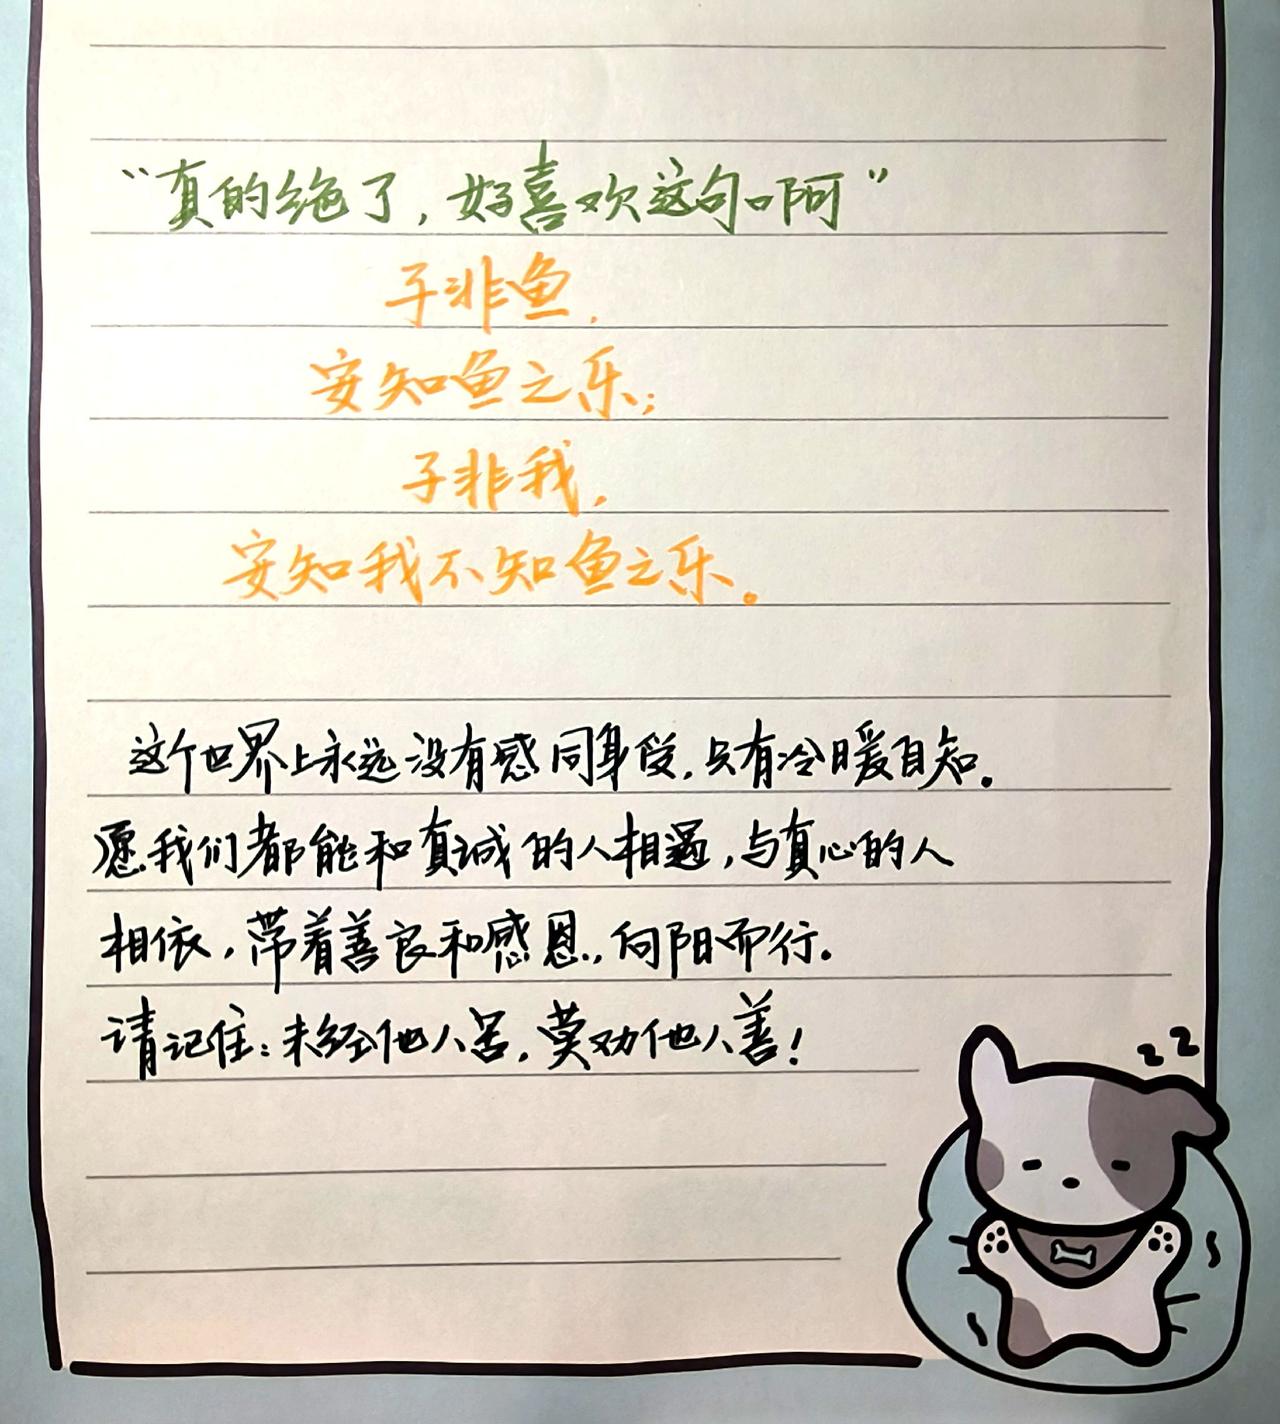 “真的绝了，好喜欢这句啊”
子非鱼，
安知鱼之乐；
子非我，
安知我不知鱼之乐。
这个世界上永远没有感同身受，只有冷暖自知。
愿我们都能和真诚的人相遇，与真心的人
相依，带着善良和感恩，向阳而行。
请记住：未经他人苦，莫劝他人善！
zz